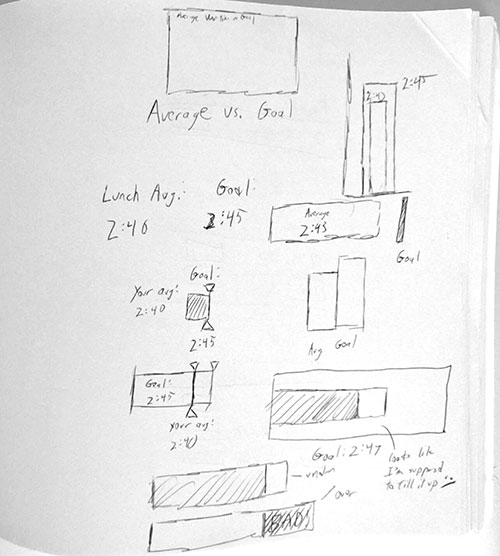 Average
Goal
Average vs. Goal
2:45
2:43
Lunch Avg.:
Goal:
2:40
2:45
Average
2:43
Goal
Goal:
Your avg:
2:40
2:45
Avg
Goal
Goal:
2:45
Your avg:
2:40
Goal: 2:47
looks like
I'm supposed
to fill it up
under
over
BAD